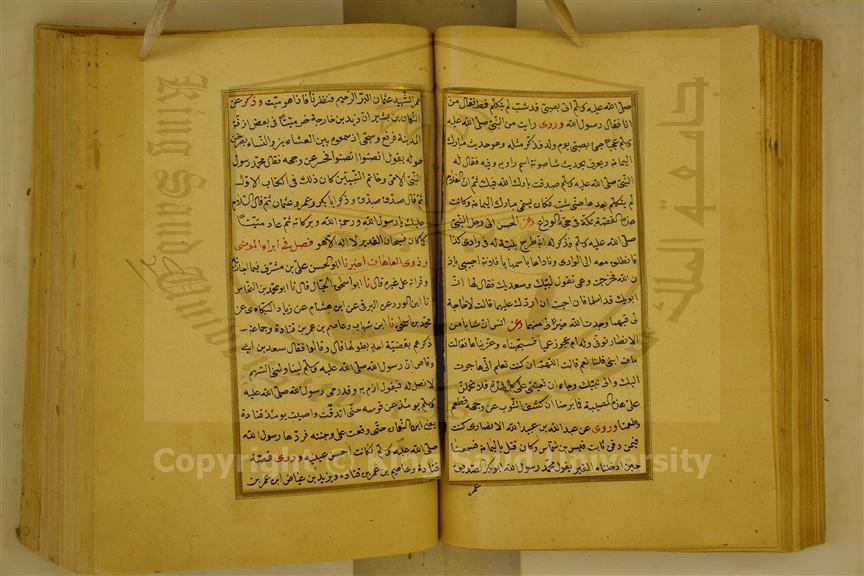 صلى الله عليه وسلم اتى بصبي قد شب لم يتكلم قط فقال من
انا فقال رسول الله وروى رايت من النبي صلى الله عليه
وسلم عجبا جئ بصبي يوم ولد فذكر مثله وهو حديث مبارك
اليمامة ويعرف بحديث شاصونة اسم راويه وفيه فقال له
النبي صلى الله عليه وسلم صدقت بارك الله فيك ثم ان الغلام
لم يتكلم بعدها حتى شب فكان يسمى مبارك اليمامة وكانت
هذه القصة بمكة في حجة الوداع وعن الحسن اتى رجل النبي
صلى الله عليه وسلم فذكر له انه طرح بنية له في وادي كذا
فانطلق معه الى الوادي وناداها باسمها يا فلانة اجيبي باذن
الله فخرجت وهي تقول لبيك وسعديك فقال لها ان
ابويك قد اسلما فان احببت ان اردك عليهما قالت لا حاجة
لي فيهما وجدت الله خيرا لي منهما وعن انس ان شابا من
الانصار توفى وله ام عجوز عمياء فسجيناه وعزيناها فقالت
مات ابني قلنا نعم قالت اللهم ان كنت تعلم اني هاجرت
اليك والى نبيك رجاء ان تعينني على كل شدة فلا تحملن
على هذه المصيبة فما برحنا ان كشف الثوب عن وجهه فطعم
وطعمنا وروى عن عبد الله بن عبيد الله الانصاري كنت
فيمن دفن ثابت بن قيس بن شماس وكان قتل باليمامة فسمعناه
حين ادخلناه القبر يقول محمد رسول الله ابو بكر الصديق
عمر
عمر الشهيد عثمان البر الرحيم فنظرنا فاذا هو ميت وذكر عن
النعمان بن بشير ان زيد بن خارجة خر ميتا في بعض ازقة
المدينة فرفع وسجى اذ سمعوه بين العشاءين والنساء يصرخن
حوله يقول انصتوا انصتوا فحسر عن وجهه فقال محمد رسول
النبي الامي وخاتم النبيين كان ذلك في الكتاب الاول
ثم قال صدق صدق وذكر ابا بكر وعمر وعثمان ثم قال السلام
عليك يا رسول الله ورحمة الله وبركاته ثم عاد ميتا
كما كان فسبحان القدير لا اله الا هو فصل في ابراء المرضى
وذوى العاهات اخبرنا ابو الحسن علي بن مشرف فيما اجازنيه
وقراته على غيره قال نا ابو اسحق الحبال قال نا ابو محمد بن النحاس
نا ابن الورد عن البرقي عن ابن هشام عن زياد البكائي عن
محمد بن اسحق نا ابن شهاب وعاصم بن عمر بن قتادة وجماعة
ذكرهم بقضية احد بطولها قال وقالوا قال سعد بن ابي
وقاص ان رسول الله صلى الله عليه وسلم ليناولني السهم
لا نصل له فيقول ارم به وقد رمى رسول الله صلى الله عليه
وسلم يومئذ عن قوسه حتى اندقت واصيبت يومئذ عين قتادة
يعنى ابن النعمان حتى وقعت على وجنته فردها رسول الله
صلى الله عليه وسلم فكانت احسن عينيه وروى قصة
قتادة عاصم بن عمر بن قتادة ويزيد بن عياض ابن عمر بن
King Saud University
جامعة الملك
Copyright © King Saud University